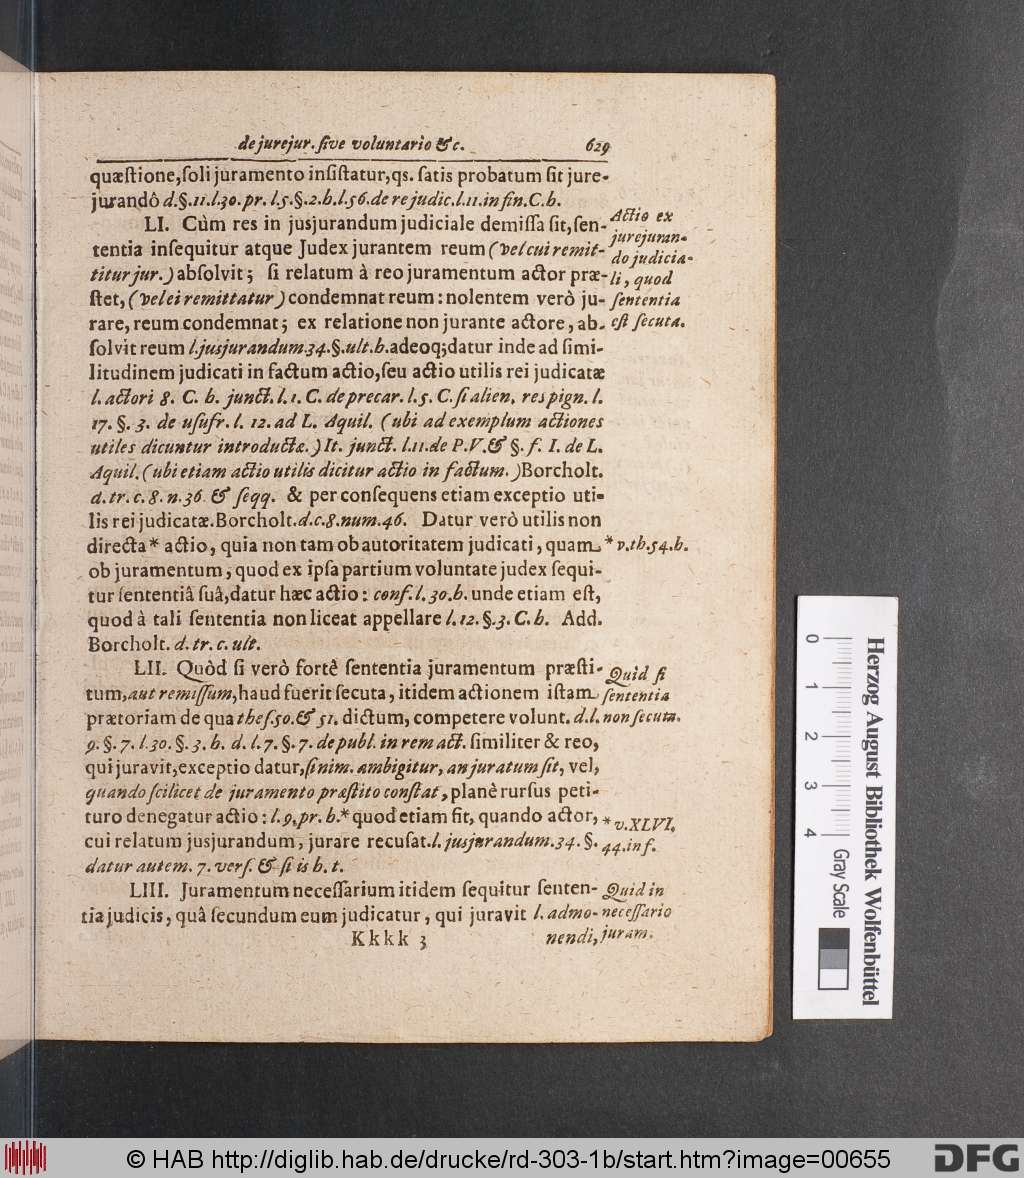 de jurejur. ſive voluntariò &c. 629
quæſtione, ſoli juramento inſiſtatur, qs. ſatis probatum ſit jure-
jurandô d. §. 11. l. 30. pr. l. 5. §. 2. h. l. 56. de re judic. l. 11. in fin. C. h.
LI. Cùm res in jusjurandum judiciale demiſſa ſit, ſen-
tentia inſequitur atque Judex jurantem reum (vel cui remit-
titur jur.) abſolvit; ſi relatum à reo juramentum actor præ-
ſtet, (vel ei remittatur) condemnat reum: nolentem verò ju-
rare, reum condemnat; ex relatione non jurante actore, ab-
ſolvit reum l. jusjurandum. 34. §. ult. h. adeoq; datur inde ad ſimi-
litudinem judicati in factum actio, ſeu actio utilis rei judicatæ
l. actori 8. C. h. junct. l. 1. C. de precar. l. 5. C. ſi alien. res pign. l.
17. §. 3. de uſufr. l. 12. ad L. Aquil. (ubi ad exemplum actiones
utiles dicuntur introductæ.) It. junct. l. 11. de P. V. & §. f. I. de L.
Aquil. (ubi etiam actio utilis dicitur actio in factum.) Borcholt.
d. tr. c. 8. n. 36 & ſeqq. & per conſequens etiam exceptio uti-
lis rei judicatæ. Borcholt. d. c. 8. num. 46. Datur verò utilis non
directa* actio, quia non tam ob autoritatem judicati, quam
ob juramentum, quod ex ipſa partium voluntate judex ſequi-
tur ſententiâ ſuâ, datur hæc actio: conf. l. 30. h. unde etiam eſt,
quod à tali ſententia non liceat appellare l. 12. §. 3. C. h. Add.
Borcholt. d. tr. c. ult.
LII. Quòd ſi verò fortè ſententia juramentum præſti-
tum, aut remiſſum, haud fuerit ſecuta, itidem actionem iſtam
prætoriam de qua theſ. 50. & 51. dictum, competere volunt. d. l.
9. §. 7. l. 30. §. 3. h. d. l. 7. §. 7. de publ. in rem act. ſimiliter & reo,
qui juravit, exceptio datur, ſi nim. ambigitur, an juratum ſit, vel,
quando ſcilicet de juramento præſtito conſtat, planè rurſus peti-
turo denegatur actio: l. 9. pr. h.* quod etiam fit, quando actor,
cui relatum jusjurandum, jurare recuſat. l. jusjurandum. 34. §.
datur autem. 7. verſ. & ſi is h. t.
LIII. Juramentum neceſſarium itidem ſequitur ſenten-
tia judicis, quâ ſecundum eum judicatur, qui juravit l. admo-
Kkkk 3 nendi,
Actio ex
jurejuran-
do judicia-
li, quod
ſententia
eſt ſecuta.
* v. th. 54. h.
Quid ſi
ſententia
non ſecuta.
* v. XLVI.
44. in f.
Quid in
neceſſario
juram.
0
1
2
3
4
Gray Scale
Herzog August Bibliothek Wolfenbüttel
© HAB http://diglib.hab.de/drucke/rd-303-1b/start.htm?image=00655
DFG